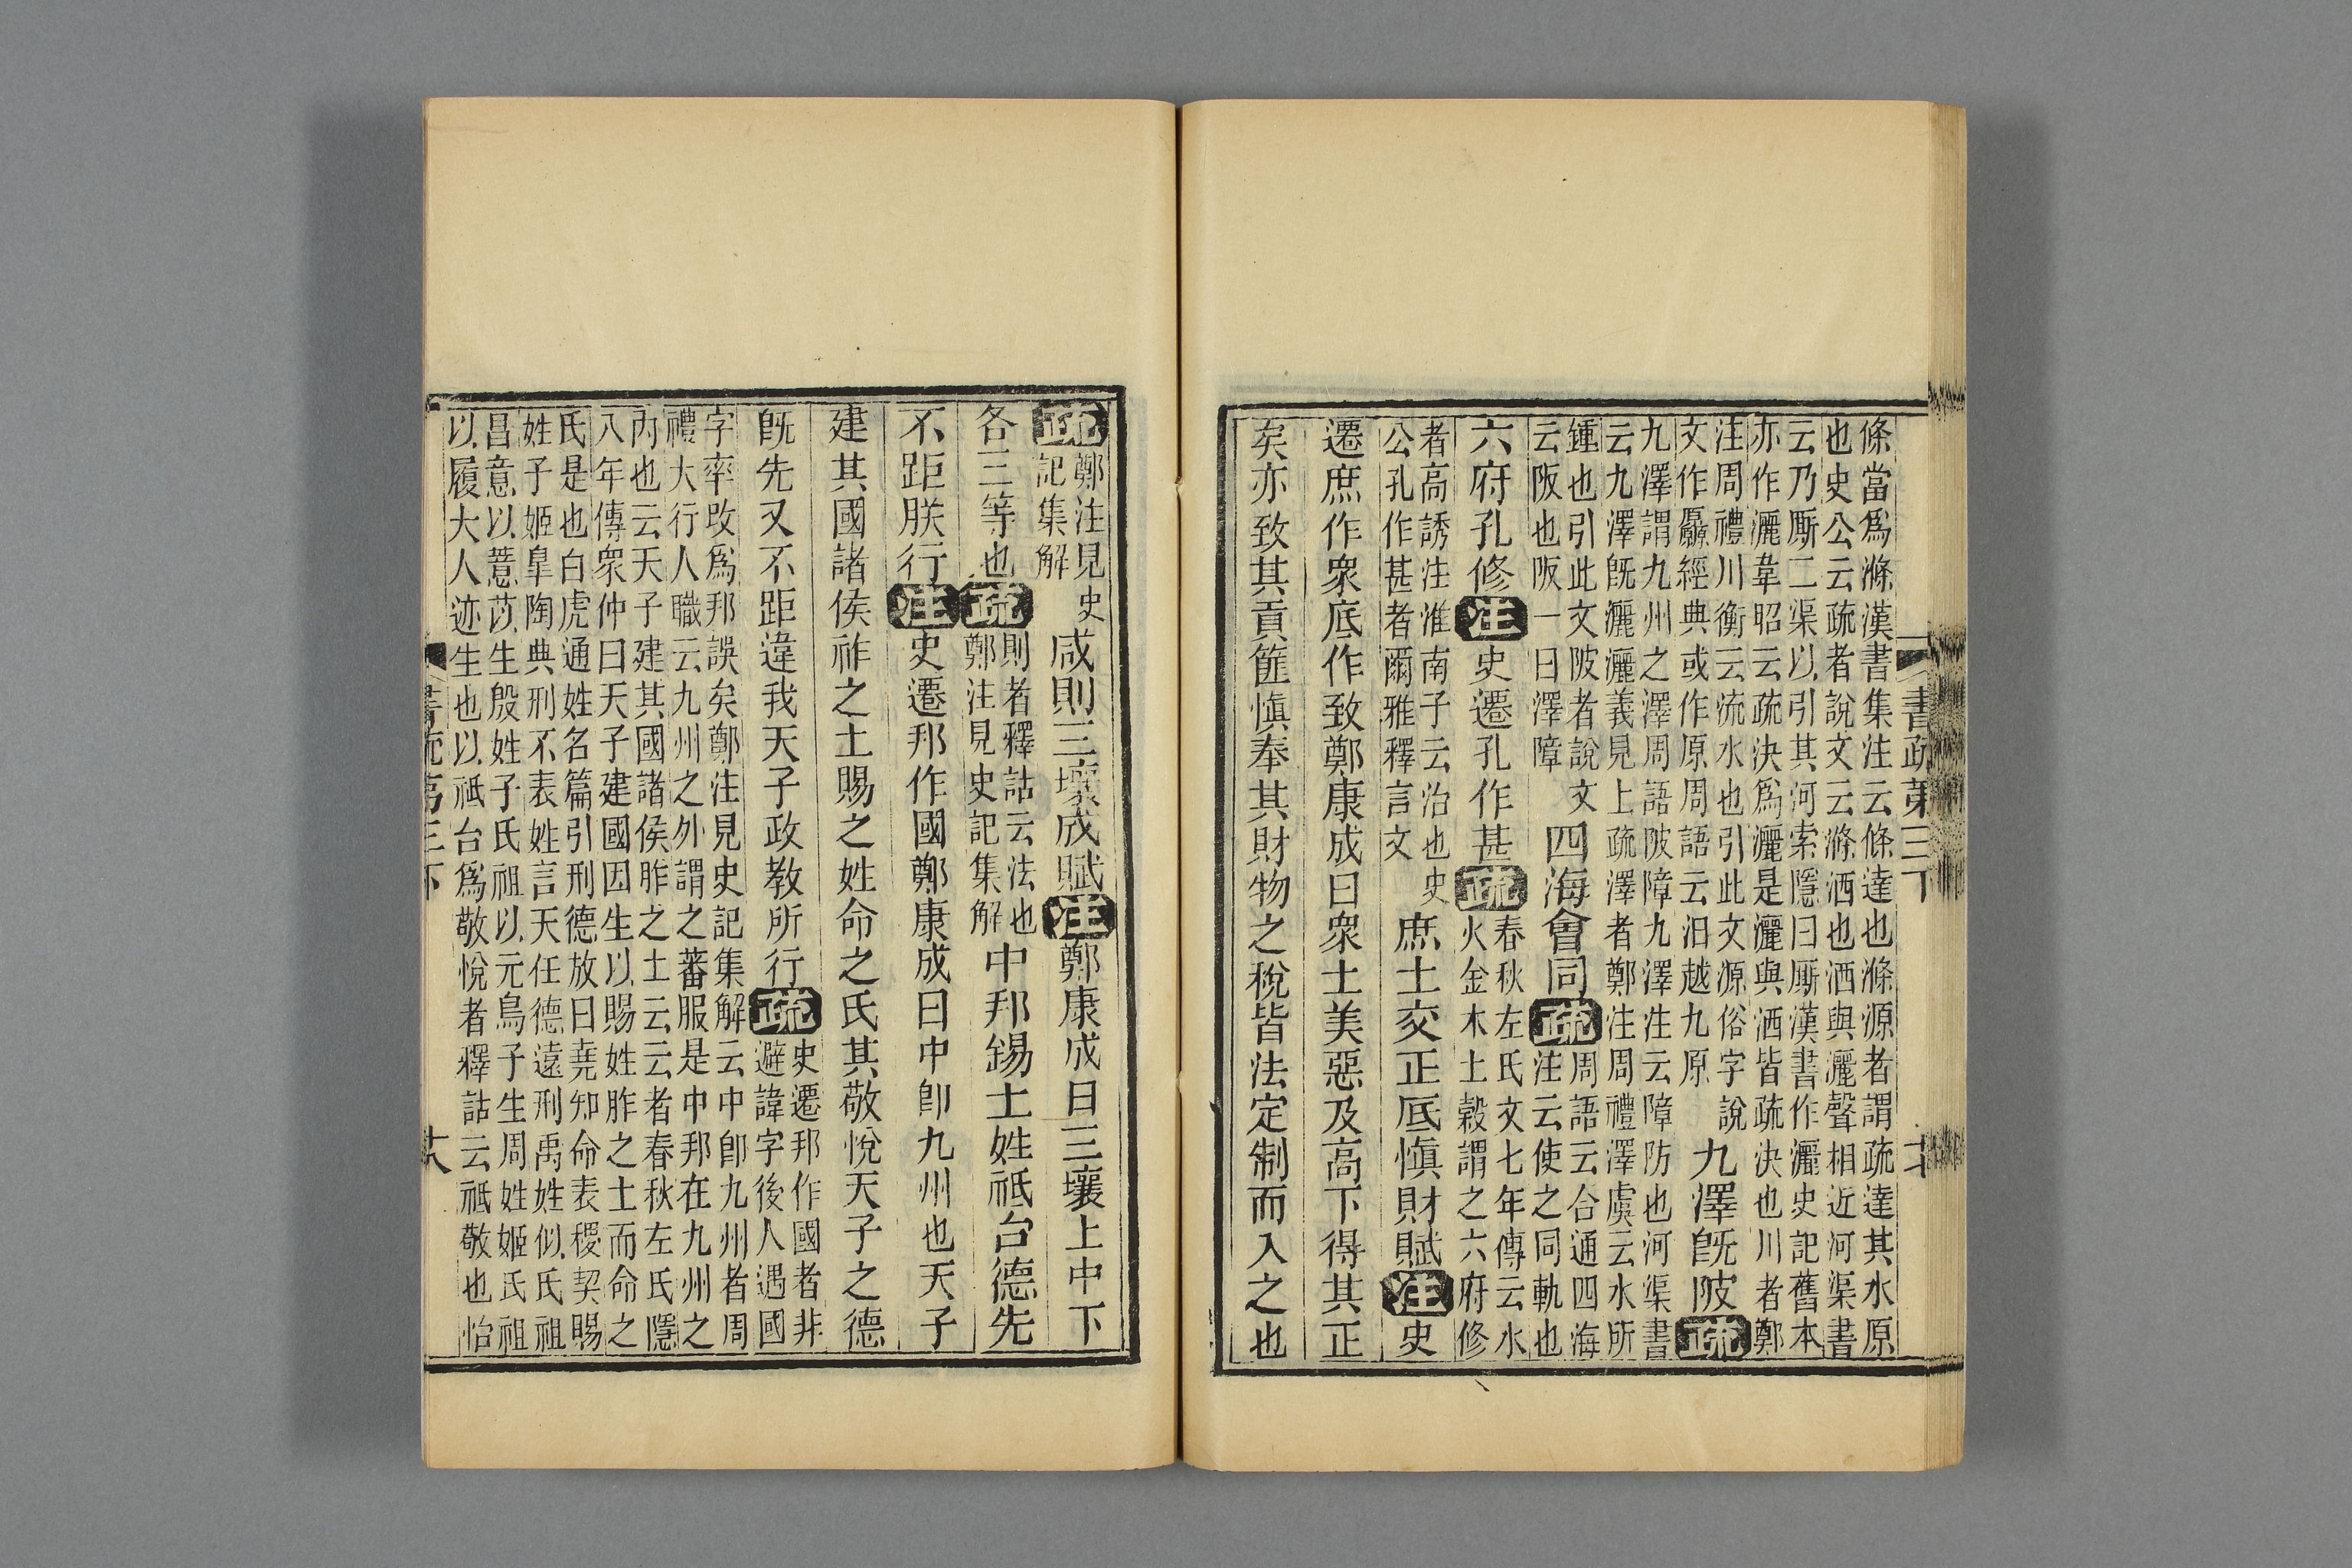 書疏第三下
條當爲滌漢書集注云條達也滌源者謂疏達其水原
也史公云疏者說文云滌洒也洒與灑聲相近河渠書
云乃厮二渠以引其河索隱曰厮漢書作灑史記舊本
亦作灑韋昭云疏決爲灑是灑與洒皆疏決也川者鄭
注周禮川衡云流水也引此文源俗字說
文作厵經典或作原周語云汨越九原
九澤旣陂疏
九澤謂九州之澤周語陂障九澤注云障防也河渠書
云九澤旣灑灑義見上疏澤者鄭注周禮澤虞云水所
鍾也引此文陂者說文
云阪也阪一曰澤障
四海會同疏
周語云合通四海
注云使之同軌也
六府孔修注史遷孔作甚疏
春秋左氏文七年傳云水
火金木土穀謂之六府修
者高誘注淮南子云治也史
公孔作甚者爾雅釋言文
庶土交正厎愼財賦注史
遷庶作衆底作致鄭康成曰衆土美惡及高下得其正
矣亦致其貢篚愼奉其財物之稅皆法定制而入之也
疏
鄭注見史
記集解
咸則三壤成賦注鄭康成曰三壤上中下
各三等也疏
則者釋詁云法也
鄭注見史記集解
中邦錫土姓祇台德先
不距朕行注史遷邦作國鄭康成曰中卽九州也天子
建其國諸侯祚之土賜之姓命之氏其敬悅天子之德
旣先又不距違我天子政教所行疏
史遷邦作國者非
避諱字後人遇國
字率改爲邦誤矣鄭注見史記集解云中卽九州者周
禮大行人職云九州之外謂之蕃服是中邦在九州之
內也云天子建其國諸侯胙之土云云者春秋左氏隱
八年傳衆仲曰天子建國因生以賜姓胙之土而命之
氏是也白虎通姓名篇引刑德放曰堯知命表稷契賜
姓子姬皐陶典刑不表姓言天任德遠刑禹姓姒氏祖
昌意以薏苡生殷姓子氏祖以元鳥子生周姓姬氏祖
以履大人迹生也以祇台爲敬悅者釋詁云祇敬也怡
書疏第三下